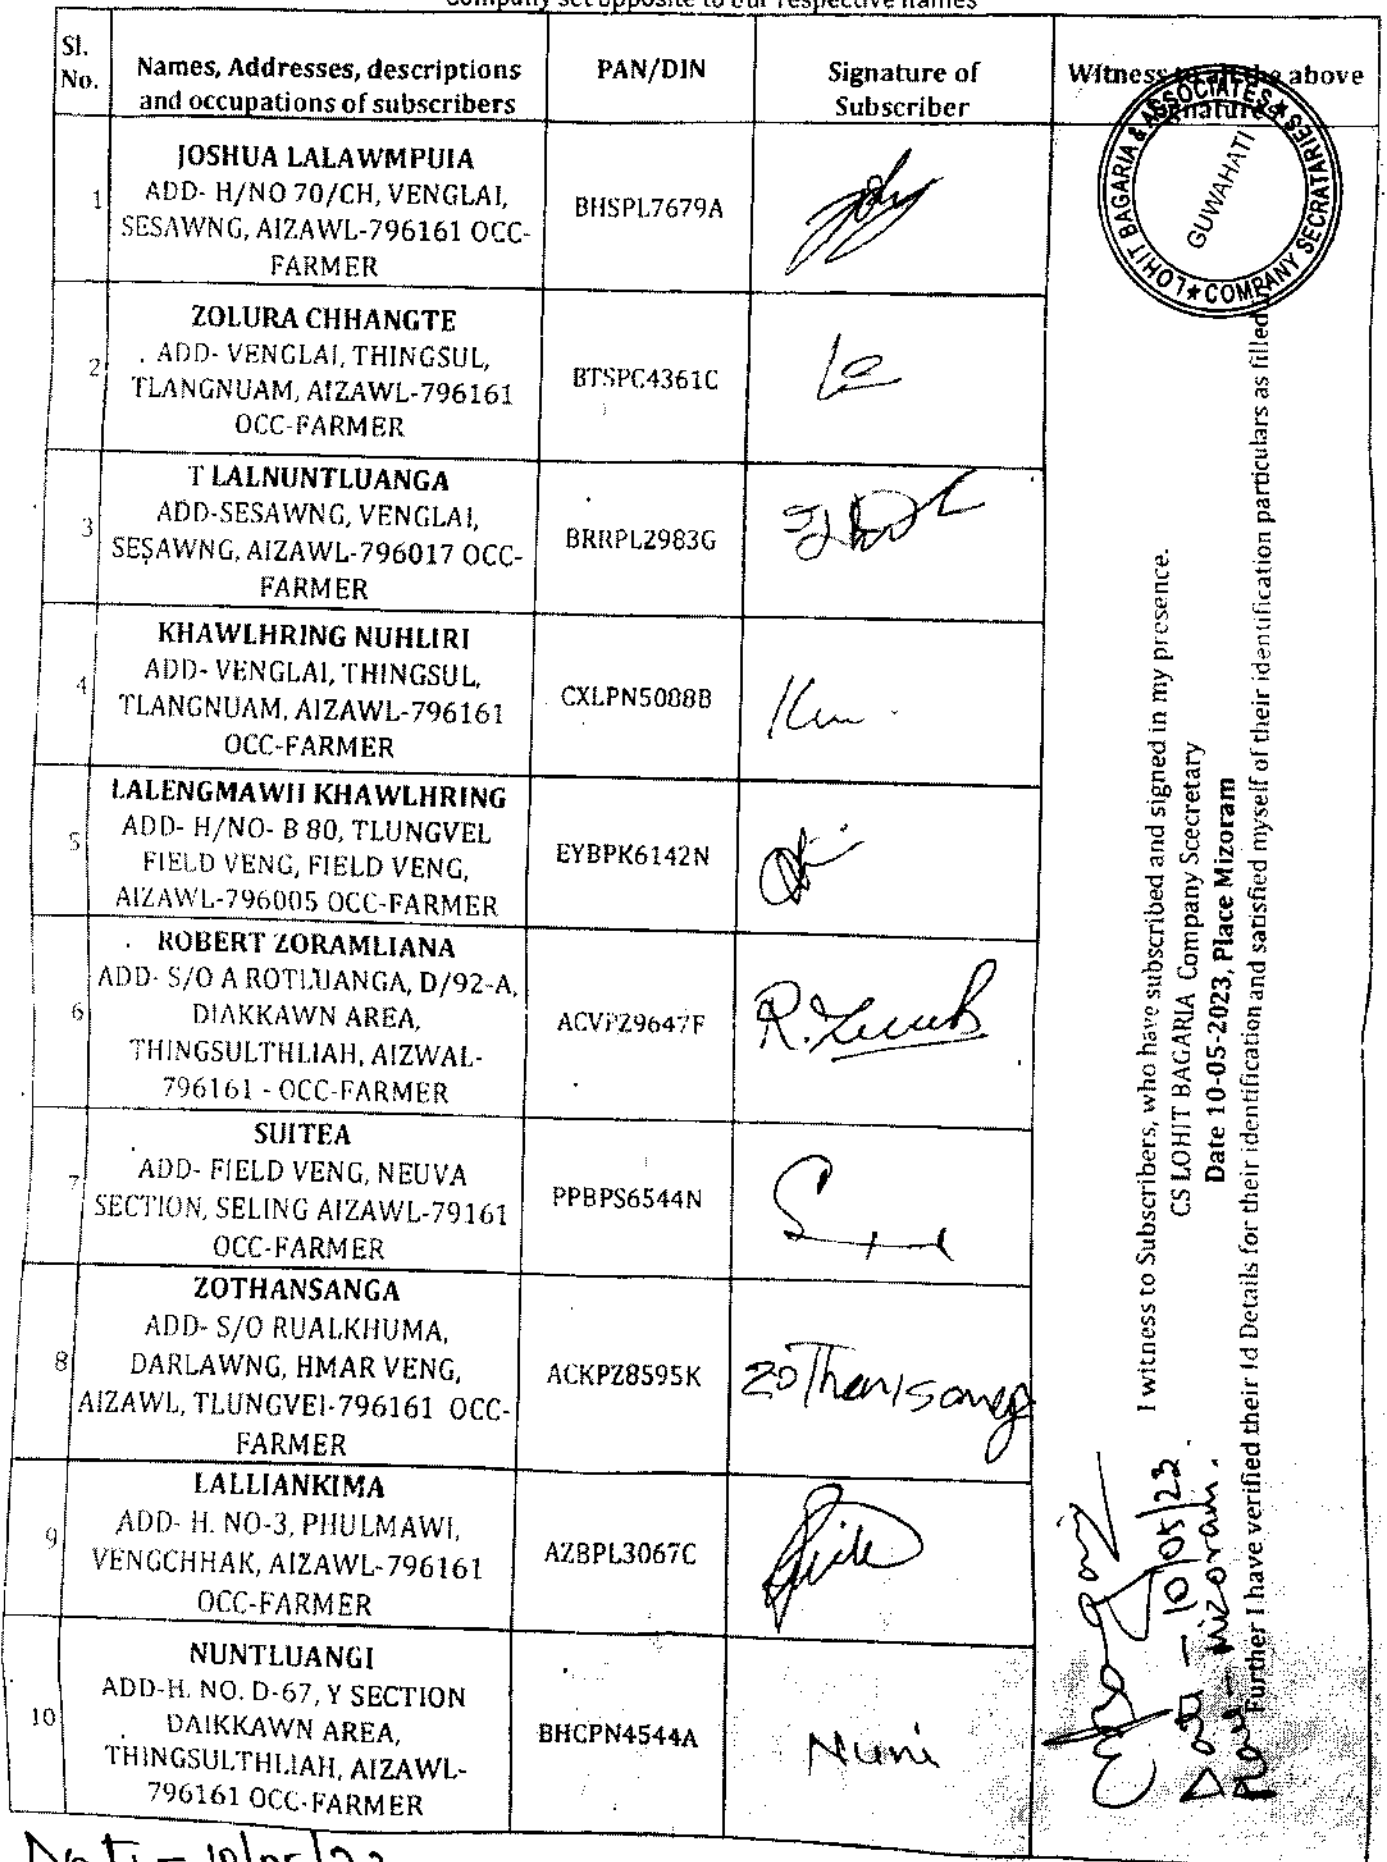 Company set opposite to our respective names
Sl.
No.
Names, Addresses, descriptions
and occupations of subscribers
PAN/DIN
Signature of
Subscriber
Witness to all the above
Signatures
1
JOSHUA LALAWMPUIA
ADD- H/NO 70/CH, VENGLAI,
SESAWNG, AIZAWL-796161 OCC-
FARMER
BHSPL7679A
2
ZOLURA CHHANGTE
ADD- VENGLAI, THINGSUL,
TLANGNUAM, AIZAWL-796161
OCC-FARMER
BTSPC4361C
3
T LALNUNTLUANGA
ADD-SESAWNG, VENGLAI,
SESAWNG, AIZAWL-796017 OCC-
FARMER
BRRPL2983G
4
KHAWLHRING NUHLIRI
ADD- VENGLAI, THINGSUL,
TLANGNUAM, AIZAWL-796161
OCC-FARMER
CXLPN5008B
5
LALENGMAWII KHAWLHRING
ADD- H/NO- B 80, TLUNGVEL
FIELD VENG, FIELD VENG,
AIZAWL-796005 OCC-FARMER
EYBPK6142N
6
ROBERT ZORAMLIANA
ADD- S/O A ROTLUANGA, D/92-A,
DIAKKAWN AREA,
THINGSULTHLIAH, AIZWAL-
796161 - OCC-FARMER
ACVPZ9647F
7
SUITEA
ADD- FIELD VENG, NEUVA
SECTION, SELING AIZAWL-79161
OCC-FARMER
PPBPS6544N
8
ZOTHANSANGA
ADD- S/O RUALKHUMA,
DARLAWNG, HMAR VENG,
AIZAWL, TLUNGVEl-796161 OCC-
FARMER
ACKPZ8595K
Zothansanga
9
LALLIANKIMA
ADD- H. NO-3, PHULMAWI,
VENGCHHAK, AIZAWL-796161
OCC-FARMER
AZBPL3067C
10
NUNTLUANGI
ADD-H. NO. D-67, Y SECTION
DAIKKAWN AREA,
THINGSULTHLIAH, AIZAWL-
796161 OCC-FARMER
BHCPN4544A
Nuni
LOHIT BAGARIA & ASSOCIATES ★ COMPANY SECRATARIES ★
GUWAHATI
I witness to Subscribers, who have subscribed and signed in my presence.
CS LOHIT BAGARIA Company Scecretary
Date 10-05-2023, Place Mizoram
Further I have verified their Id Details for their identification and satisfied myself of their identification particulars as filled
10/05/23
Mizoram.
10/05/23